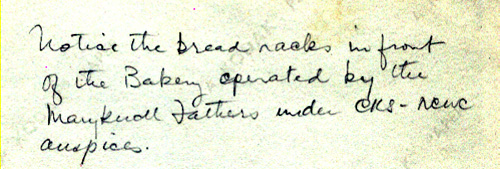 Notice the bread racks in front
of the Bakery operated by the
Maryknoll Fathers under CRS-NCWC
auspices.